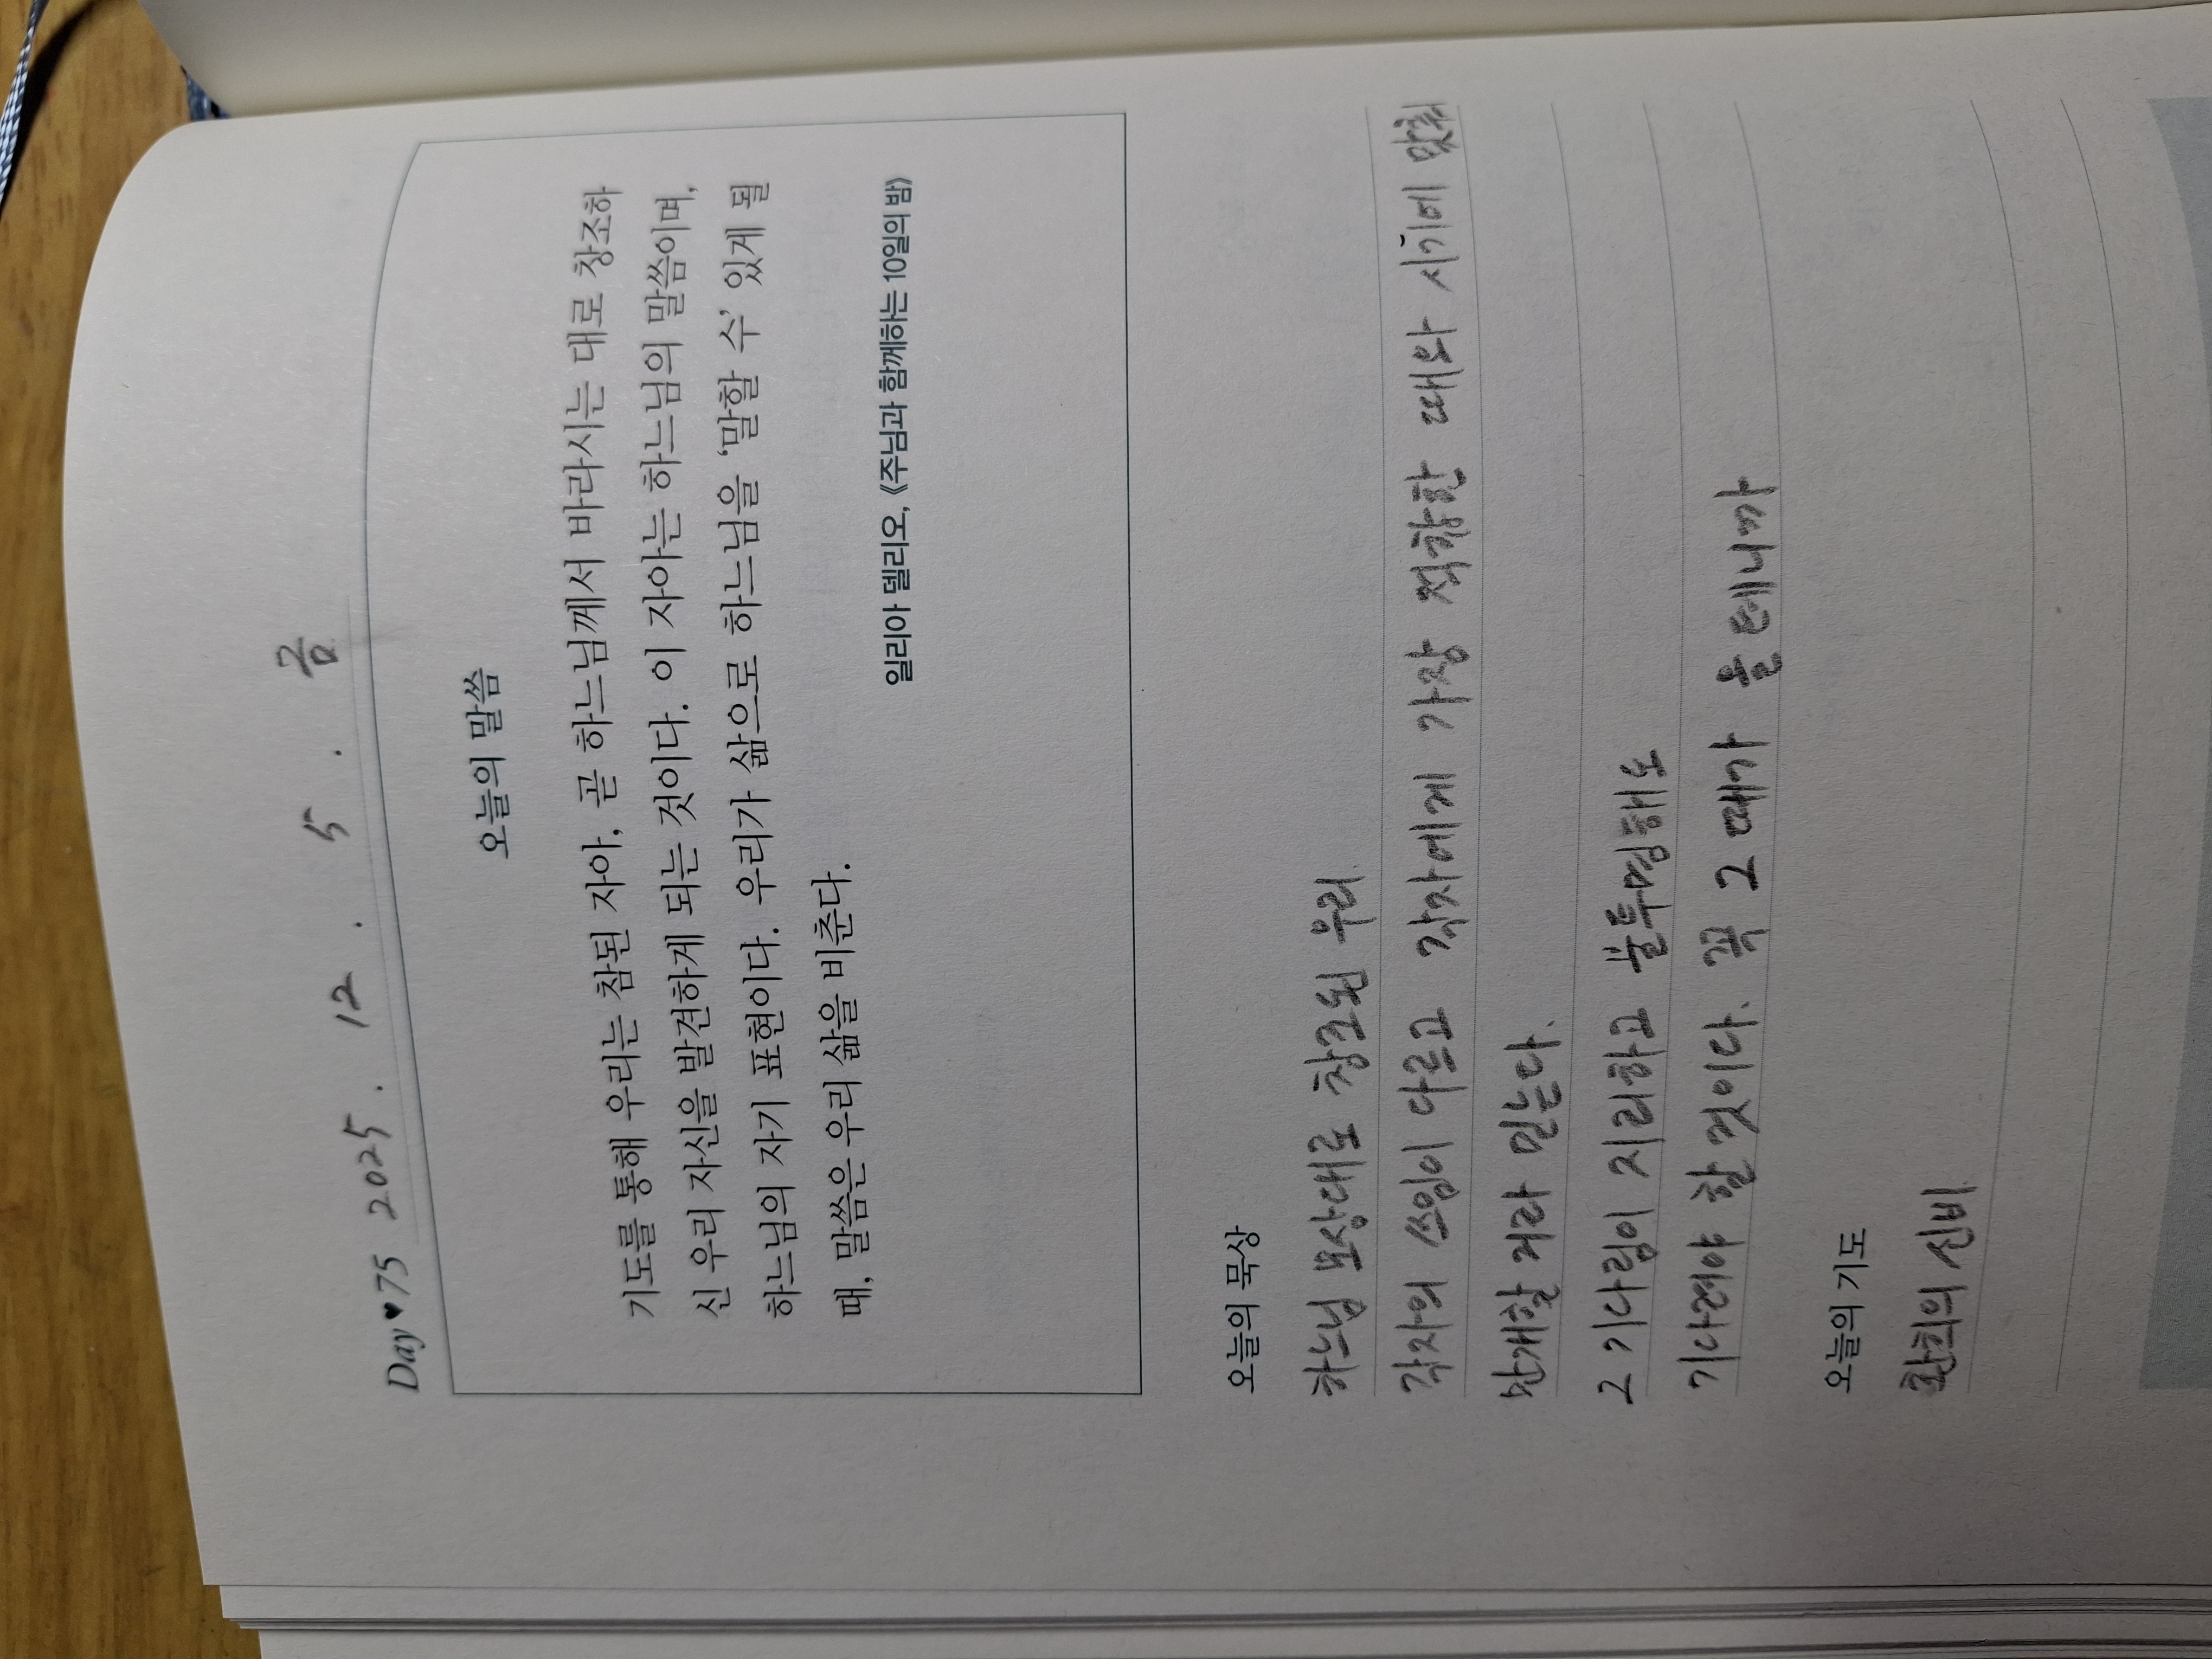 Day♥75 2025. 12. 5. 금
오늘의 말씀
기도를 통해 우리는 참된 자아, 곧 하느님께서 바라시는 대로 창조하
신 우리 자신을 발견하게 되는 것이다. 이 자아는 하느님의 말씀이며,
하느님의 자기 표현이다. 우리가 삶으로 하느님을 ‘말할 수’ 있게 될
때, 말씀은 우리 삶을 비춘다.
일리아 델리오, 《주님과 함께하는 10일의 밤》
오늘의 묵상
하느님 모상대로 창조된 우리.
각자의 쓰임이 다르고 각자에게 가장 적합한 때와 시기에 맞춰
만개할 거라 믿는다.
그 기다림이 지리하고 불투명해도
기다려야 할 것이다. 꼭 그 때가 올 테니까
오늘의 기도
환희의 신비